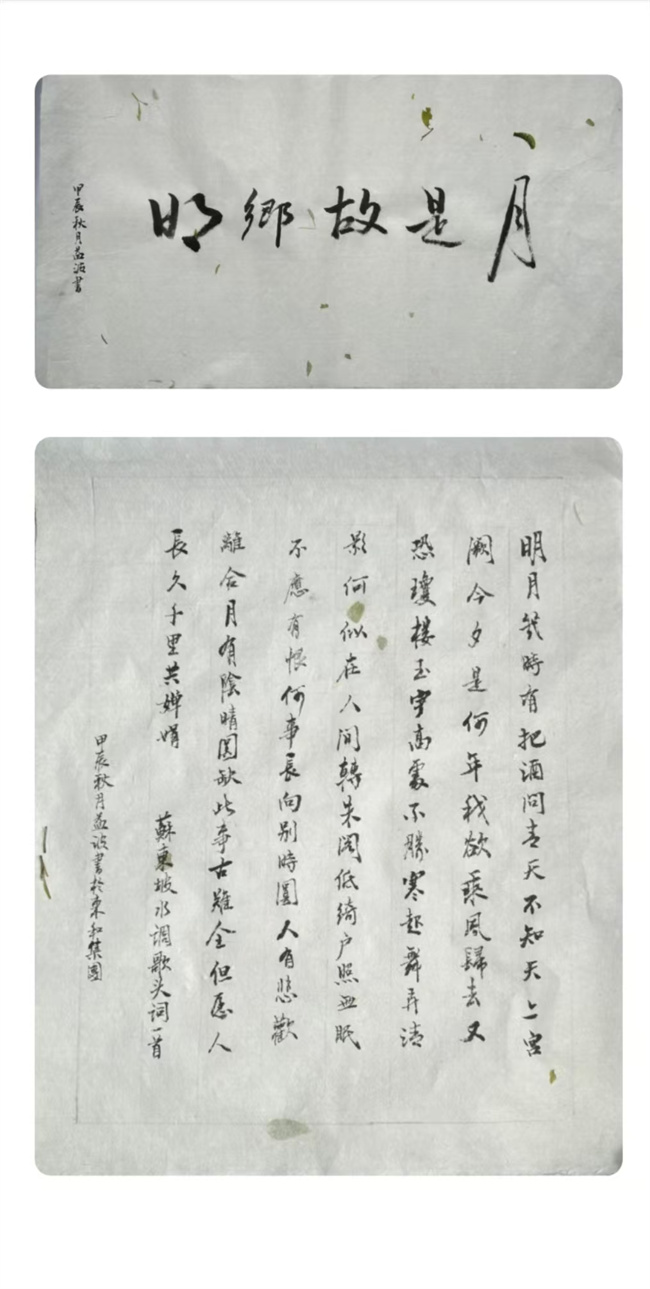 月是故鄉明
甲辰秋月益波書
明月幾時有把酒问青天不知天上宮
阙今夕是何年我欲乘風歸去又
恐瓊樓玉宇高處不勝寒起舞弄清
影何似在人间轉朱阁低绮户照無眠
不應有恨何事長向别時圓人有悲歡
離合月有陰晴圆缺此事古難全但愿人
長久千里共婵娟
蘇東坡水调歌头词一首
甲辰秋月益波書於東和集團